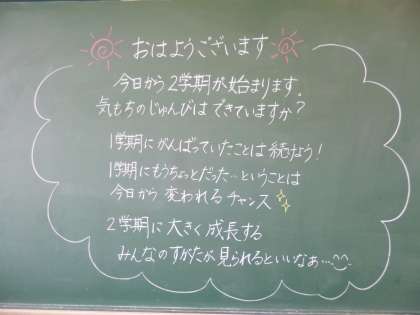 おはようございます
今日から2学期が始まります。
気もちのじゅんびはできていますか?
1学期にがんばっていたことは続けよう!
1学期にもうちょっとだった…ということは
今日から変われるチャンス
2学期に大きく成長する
みんなのすがたが見られるといいなぁ…